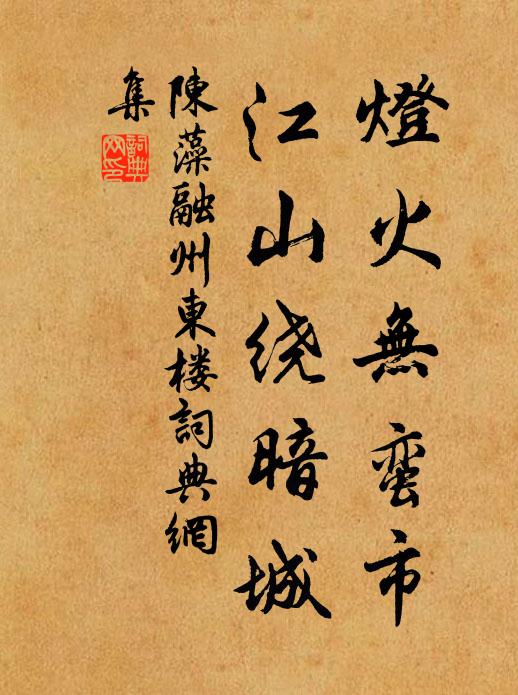 燈火無蛮市
江山绕暗城
陳藻融州東楼詞典網
集
詞典
网印